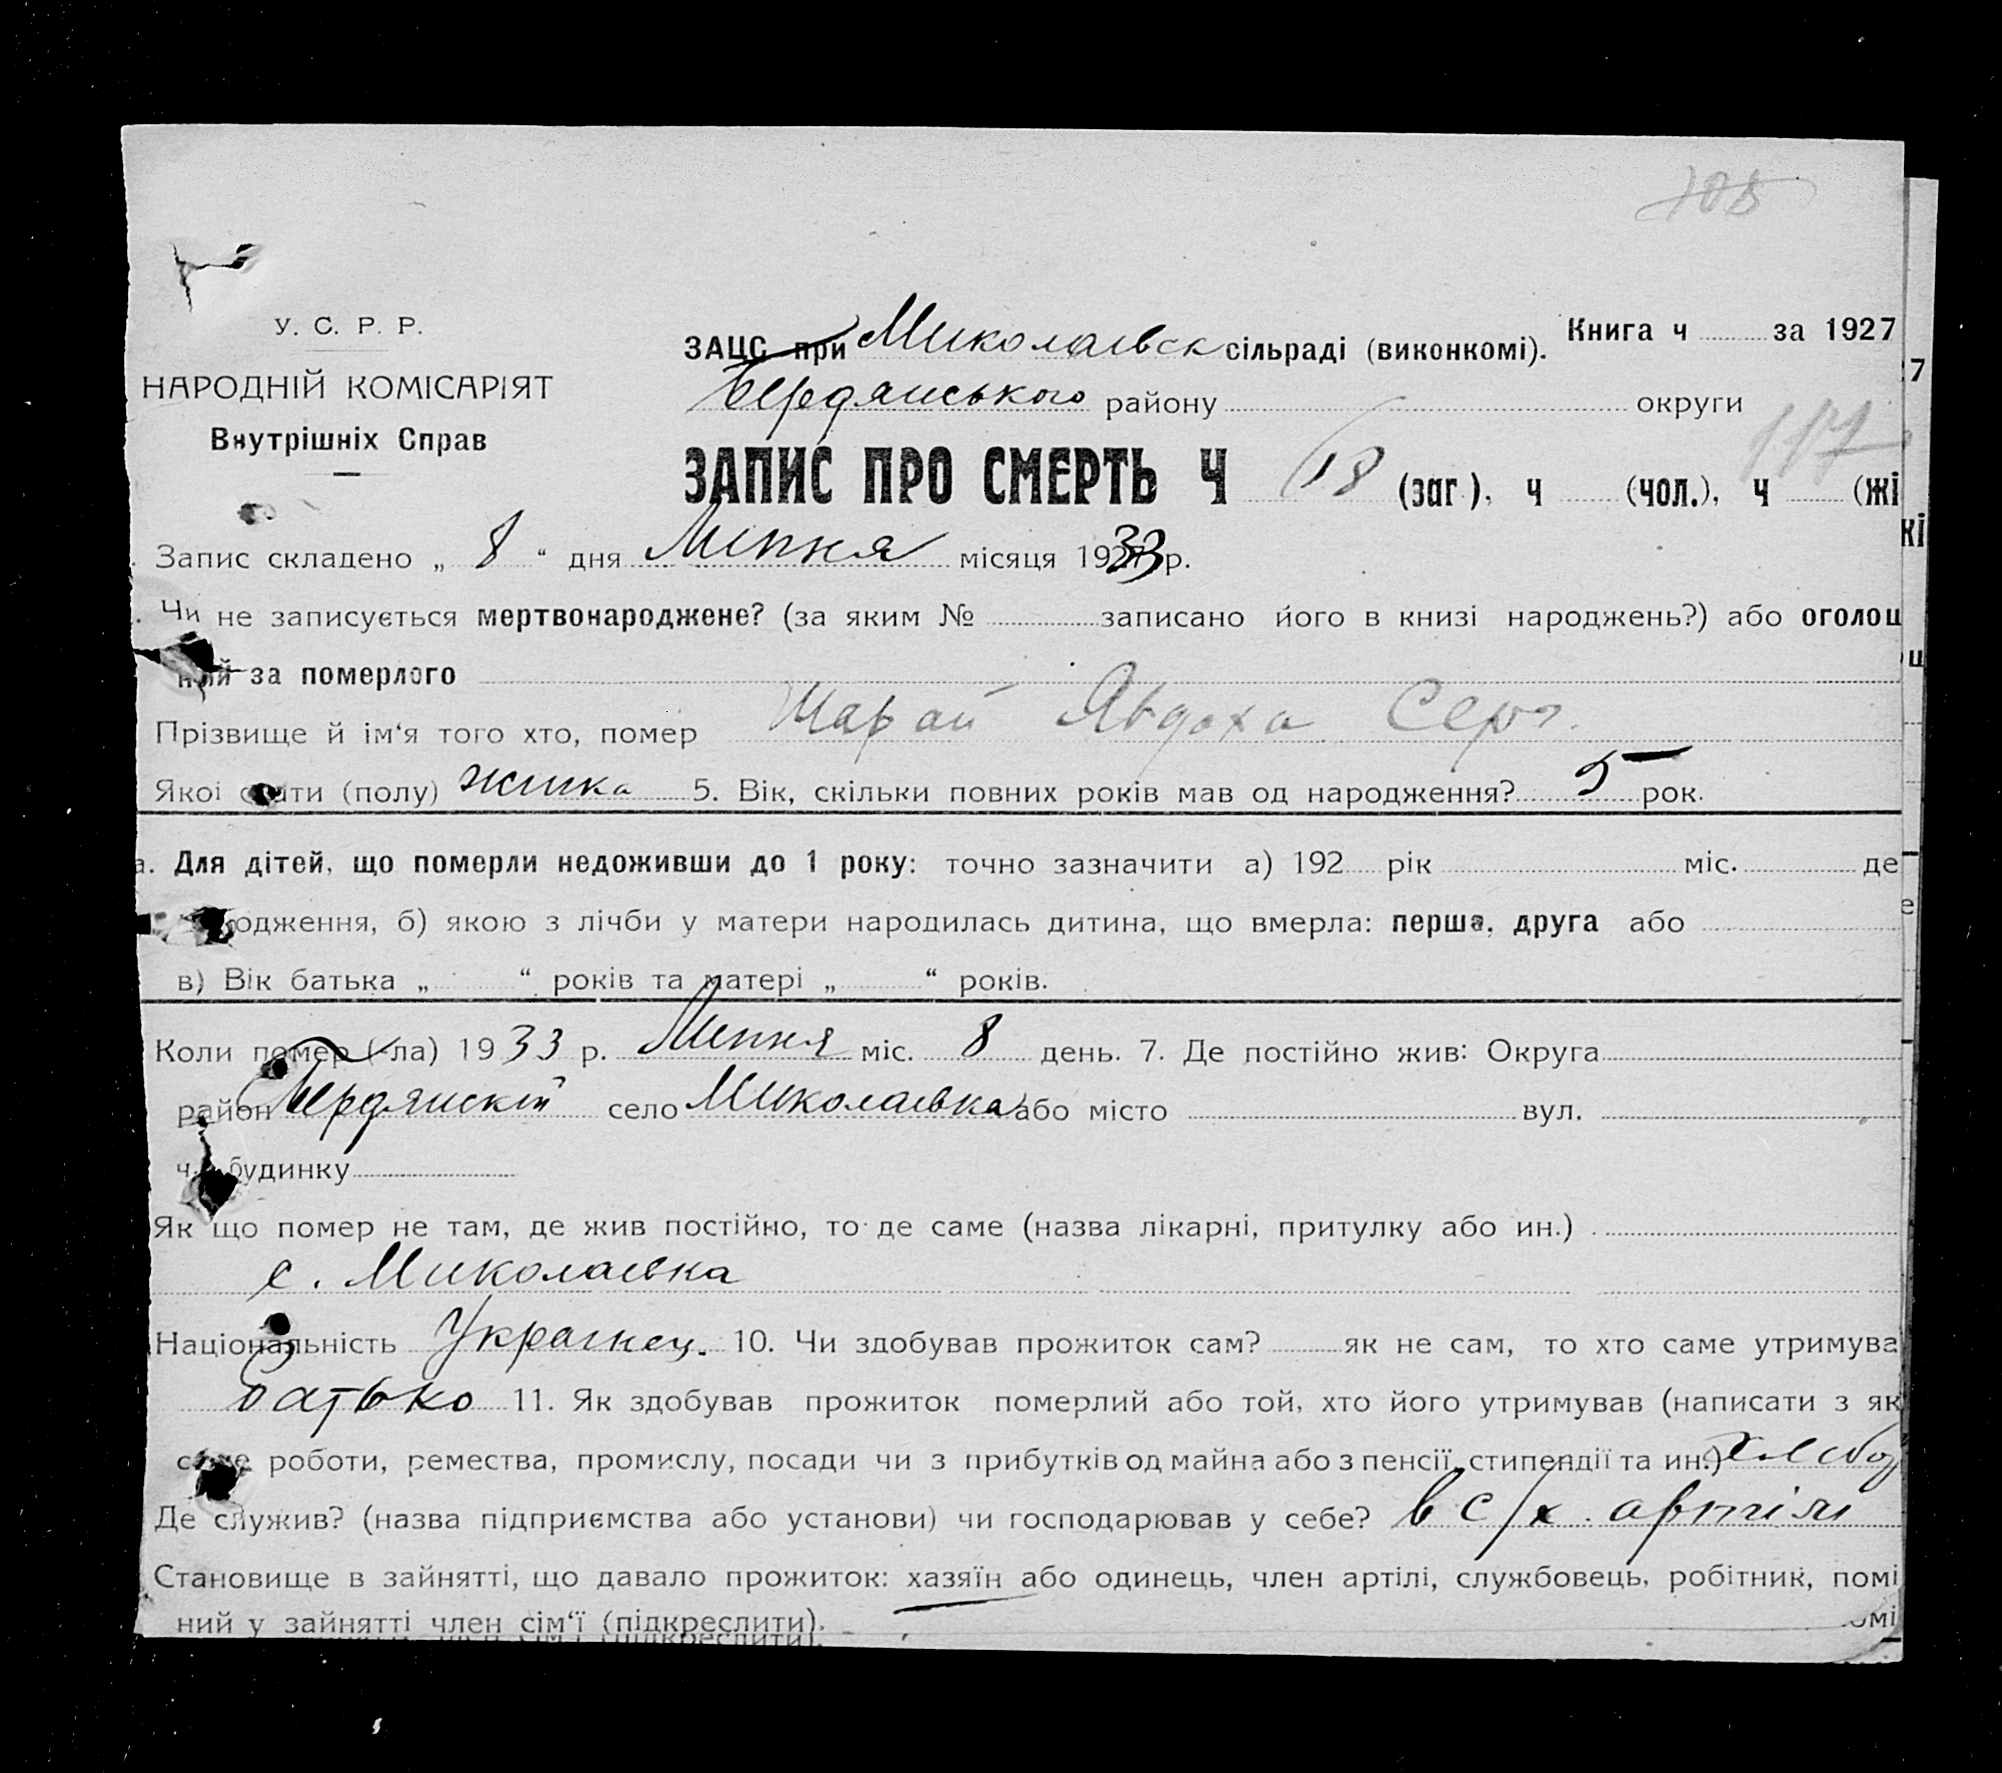 105
У. С. Р. Р.
НАРОДНІЙ КОМІСАРІЯТ
Внутрішніх Справ
ЗАЦС при Миколаевск сільраді (виконкомі). Книга ч за 1927
Бердянського району округи
ЗАПИС ПРО СМЕРТЬ Ч 68 (заг.), ч (чол.), ч 117 (жі
Запис складено „ 8 “ дня Липня місяця 1933 р.
Чи не записується мертвонароджене? (за яким № записано його в книзі народжень?) або оголош
ний за померлого
Прізвище й ім‘я того хто, помер Шарай Явдоха Серг.
Якої стати (полу) жинка 5. Вік, скільки повних років мав од народження? 5 рок.
а. Для дітей, що померли недоживши до 1 року: точно зазначити а) 192 рік міс. де
одження, б) якою з лічби у матери народилась дитина, що вмерла: перша, друга або
в) Вік батька „ “ років та матері „ “ років.
Коли помер (-ла) 1933 р. Липня міс. 8 день. 7. Де постійно жив: Округа
район Бердянскій село Миколаевка або місто вул.
ч. будинку
Як що помер не там, де жив постійно, то де саме (назва лікарні, притулку або ин.)
с. Миколаевка
Національність Украинец. 10. Чи здобував прожиток сам? як не сам, то хто саме утримува
батько 11. Як здобував прожиток померлий або той, хто його утримував (написати з як
саме роботи, ремества, промислу, посади чи з прибутків од майна або з пенсії, стипендії та ин.) хлібор
Де служив? (назва підприємства або установи) чи господарював у себе? в с/х артілі
Становище в зайнятті, що давало прожиток: хазяїн або одинець, член артілі, службовець, робітник, помі
ний у зайнятті член сім‘ї (підкреслити).